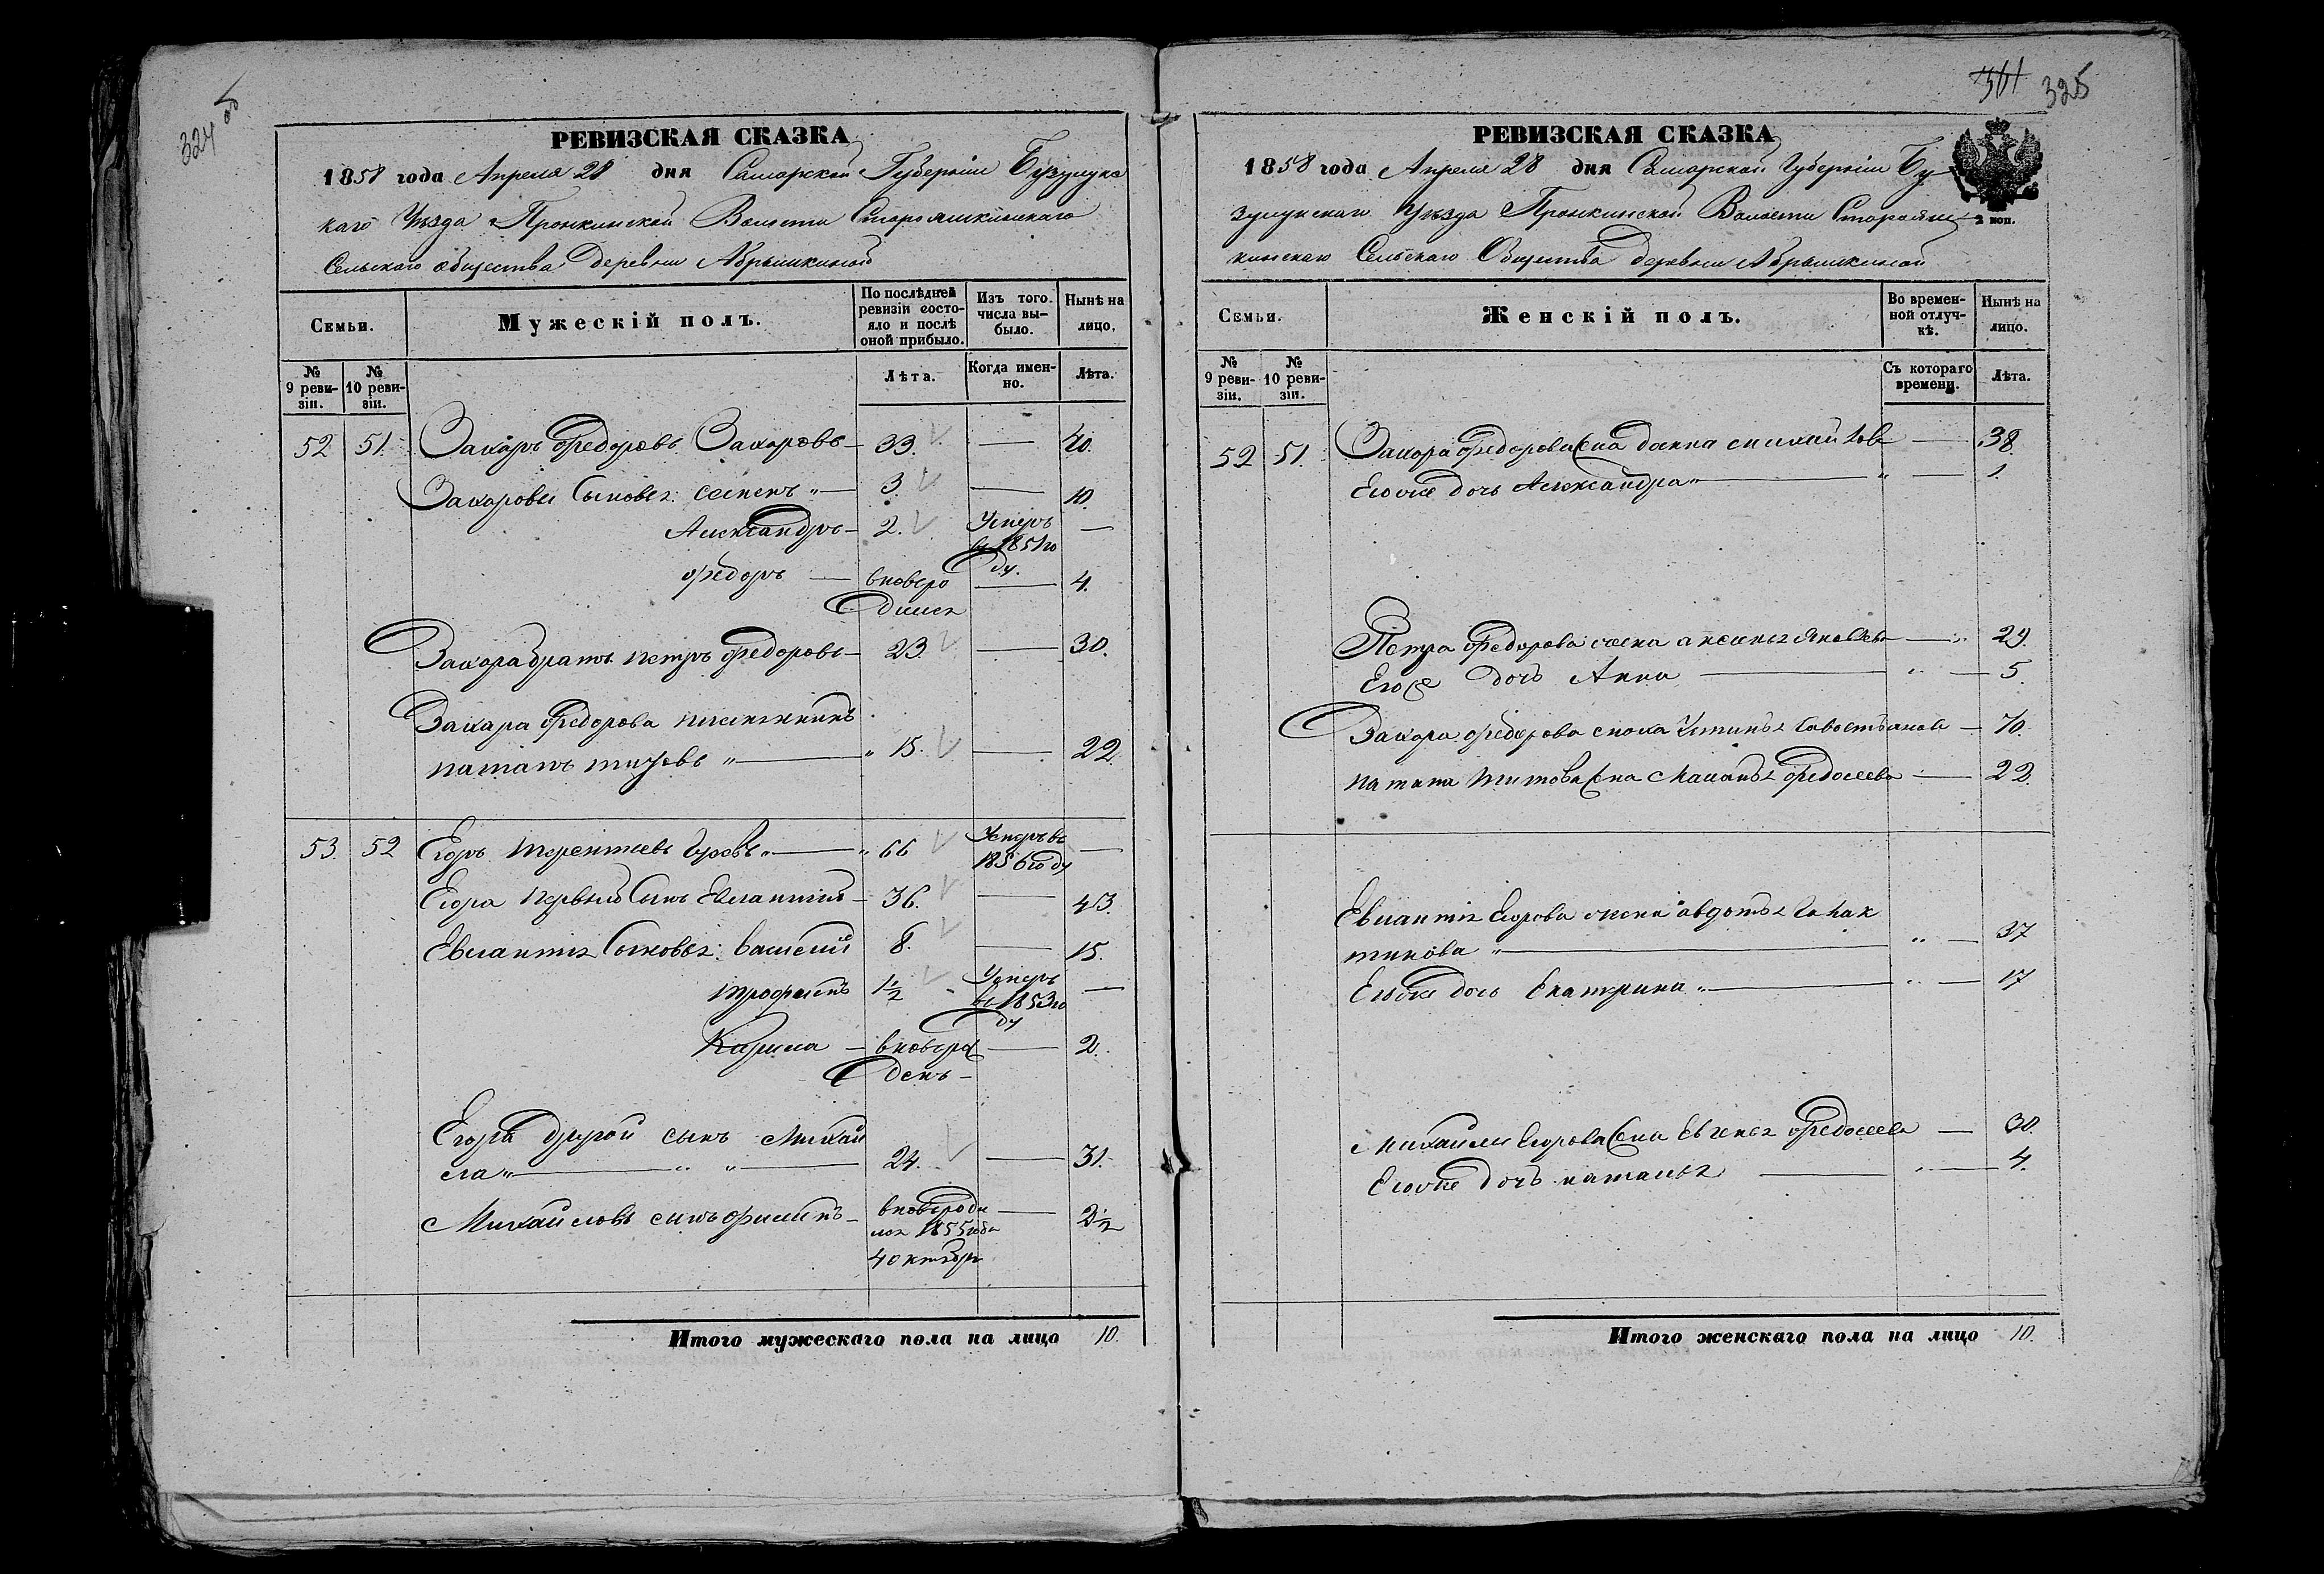 324 об
РЕВИЗСКАЯ СКАЗКА
1858 года Апреля 28 дня Самарской Губернiи Бузулукс
каго Уѣзда Пронкинской Волости Старояшкинскаго
Сельскаго общества Деревни Абрышкиной
Семьи.
Мужескiй полъ.
По послѣдней ревизiи состояло и послѣ оной прибыло.
Изъ того числа выбыло.
Нынѣ на лицо.
№ 9 ревизiи.
№ 10 ревизiи.
Лѣта.
Когда именно.
Лѣта.
52 51. Захаръ Федоровъ Захаровъ 33. — 40.
Захаровы Сыновья: Семенъ 3. — 10.
Александръ 2. Умеръ —
въ 1851 го
ду.
Федоръ — вновьро — 4.
дился
Захара братъ Петръ Федоровъ 23 — 30.
Захара Федорова племянникъ
Потапъ Титовъ 15. — 22.
53. 52 Егоръ Терентьевъ 66 Умеръ въ —
1856 году
Егора Первый Сынъ Евлантiй 36. — 43.
Евлантiя Сыновья: Василiй 8. — 15.
Трофимъ 1½ Умеръ —
въ 1853 го
ду
Кирила — вновьро — 2.
денъ
Егора другой сынъ Михай
ла 24. — 31.
Михайловъ сынъ Филипъ вновьроди — 2½
лся 1855 года
4 октября
Итого мужескаго пола на лицо 10.
361 325
РЕВИЗСКАЯ СКАЗКА
1858 года Апреля 28 дня Самарской Губернiи Бу
зулукскаго Уѣзда Пронкинской Волости Старояш
2 коп.
кинскаго Сельскаго Общества деревни Абрышкиной
Семьи.
Женскiй полъ.
Во временной отлучкѣ.
Нынѣ на лицо.
№ 9 ревизiи.
№ 10 ревизiи.
Съ котораго времени.
Лѣта.
52 51. Захара Федорова жена Михайлова — 38.
Егоже дочь Александра — 1.
Петра Федорова жена Аксинья Яковлева — 29.
Егоже дочь Анна — 5.
Захара Федорова Устинья Савостьянова — 70.
Потапа Титова жена Маланья Федосеева — 22.
Евлантiя Егорова жена Авдотья Галак
тионова — 37
Егоже дочь Екатерина — 17
Михайлы Егорова жена Евгенья Федосеева — 30.
Егоже дочь Наталья — 4.
Итого женскаго пола на лицо 10.